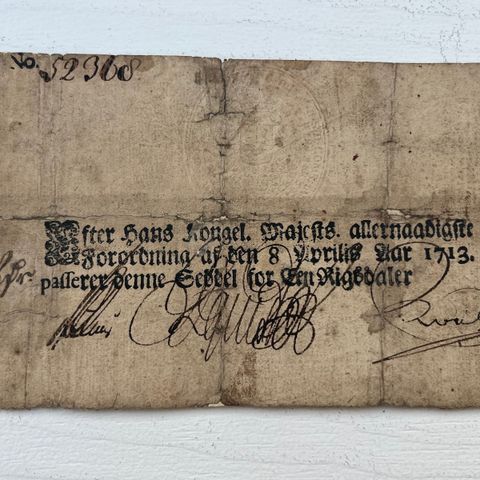 No. 52368
Efter Hans Kongel. Majests. allernaadigste
Forordning af den 8 Aprilis Aar 1713.
passerer denne Seddel for Een Rigsdaler